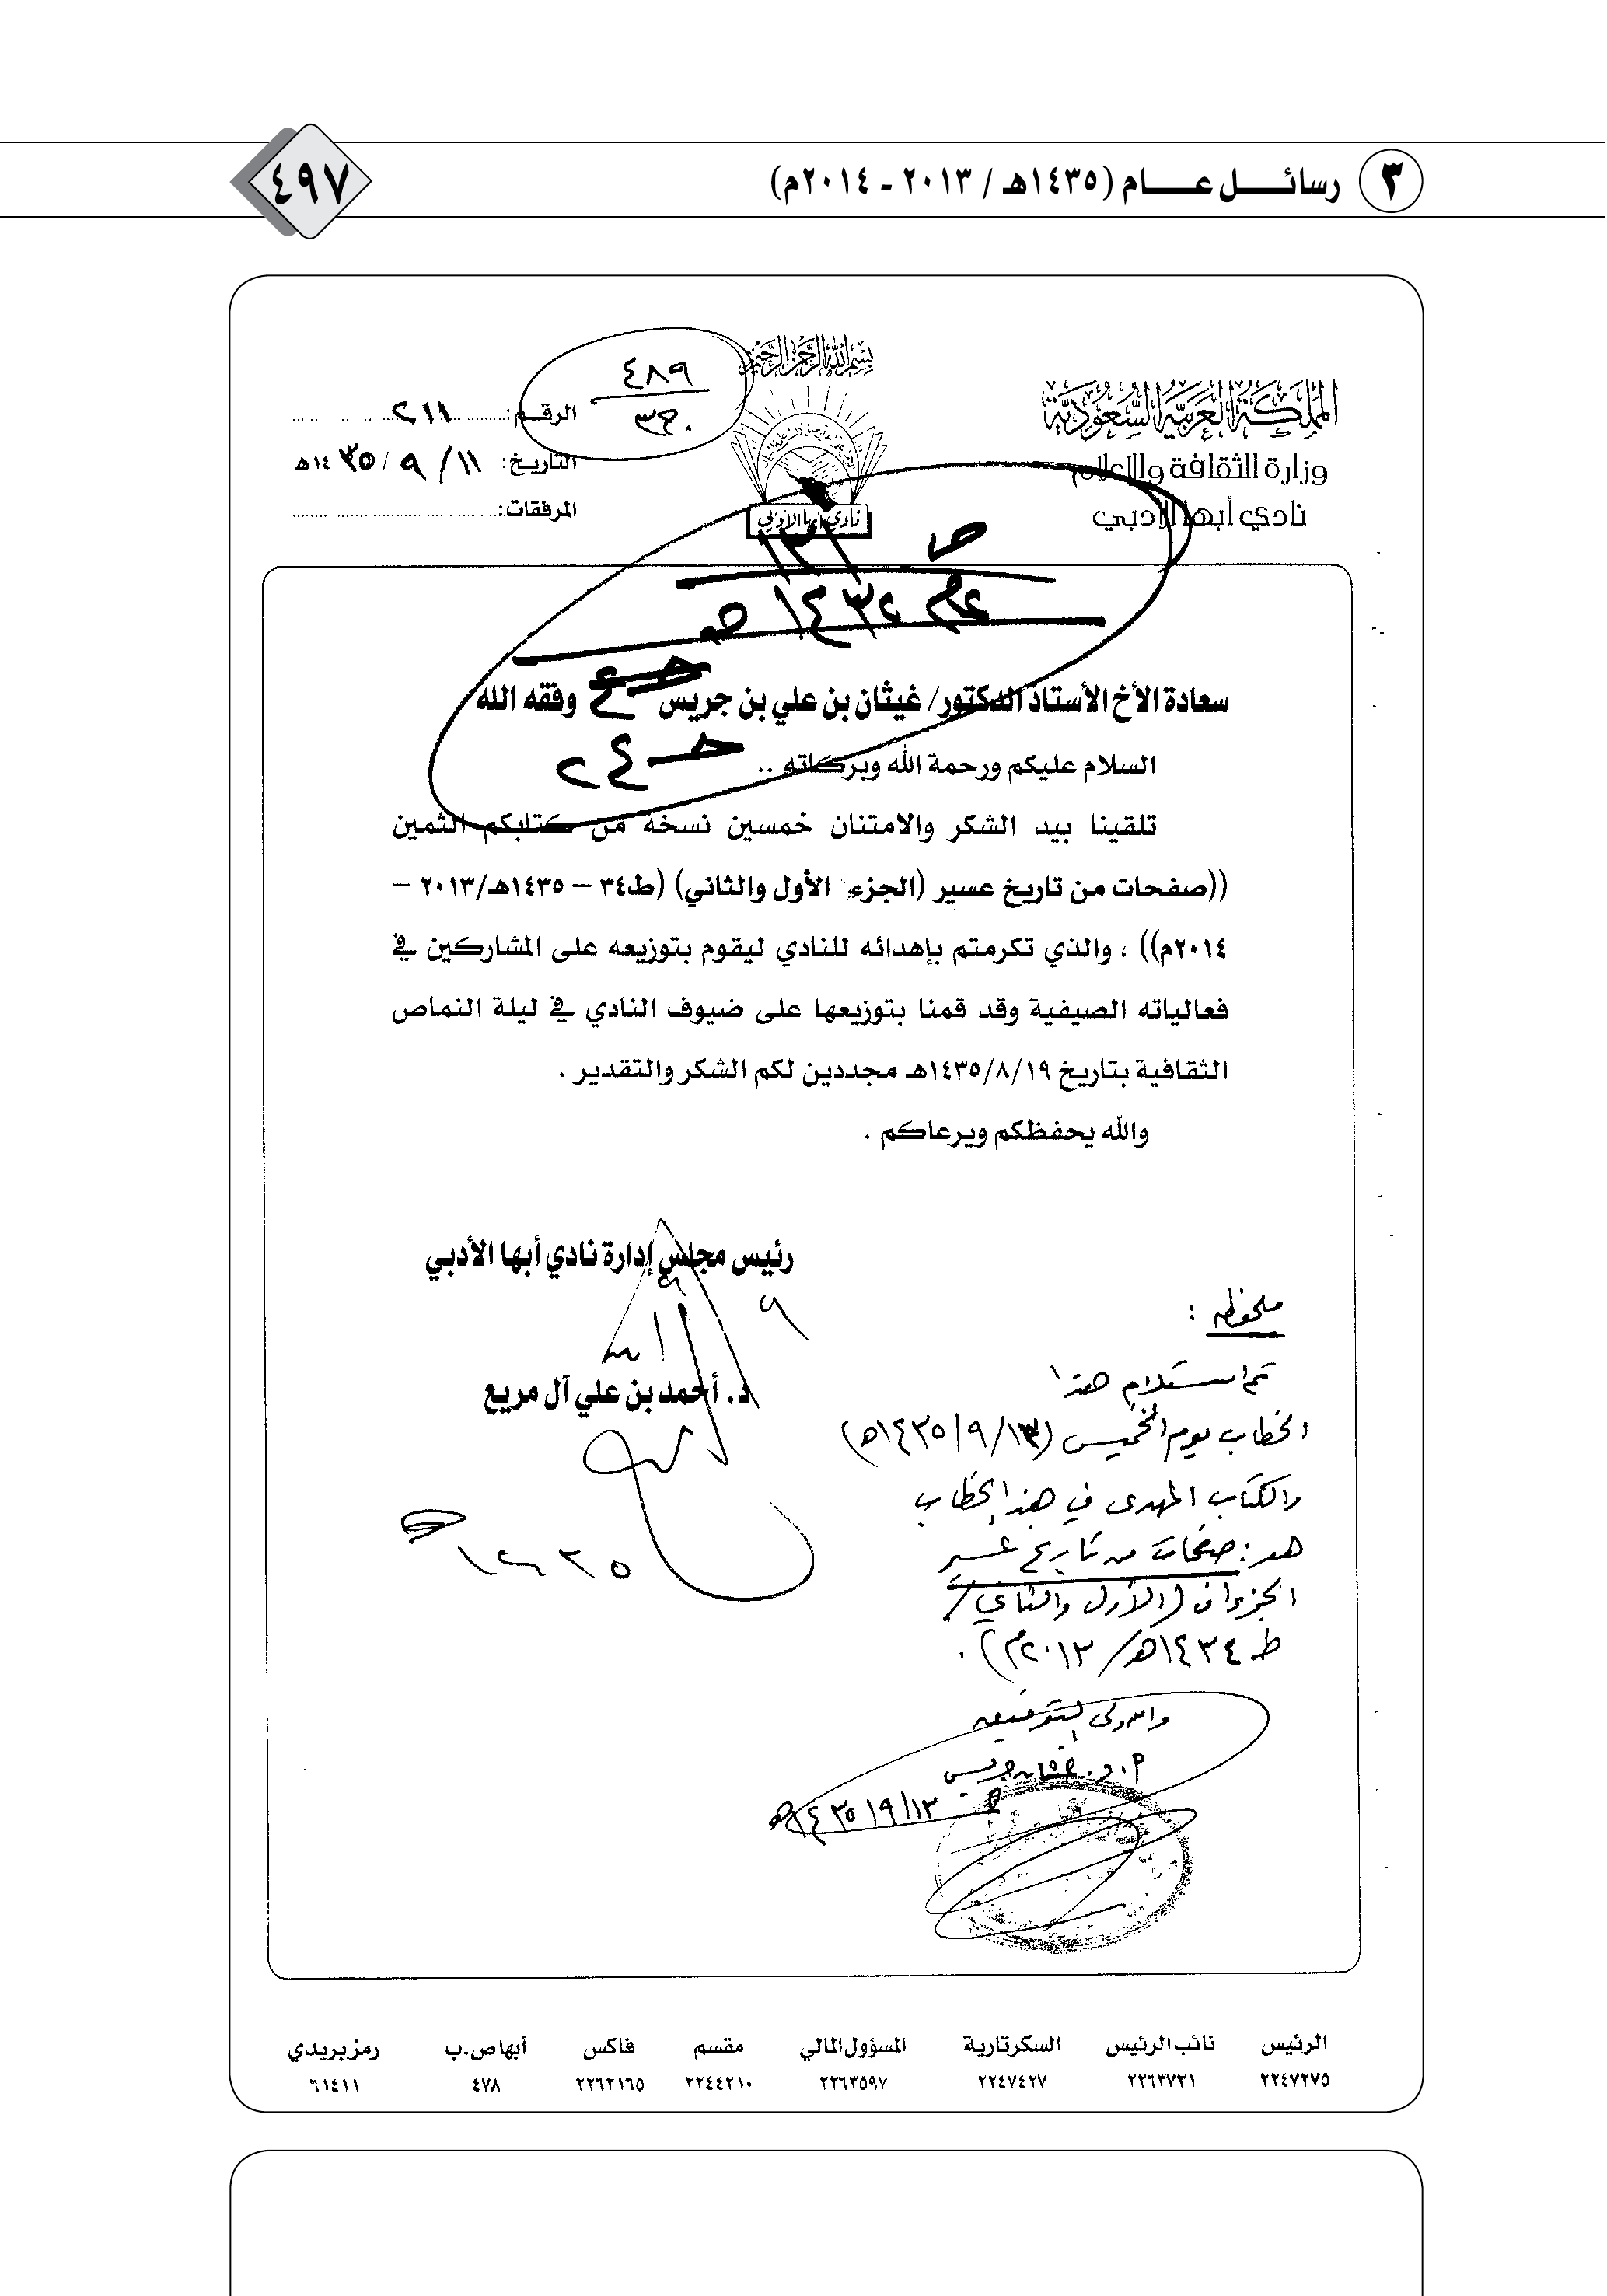 ٣ رسائـــل عـــــام (١٤٣٥هـ / ٢٠١٣ ـ ٢٠١٤م)
٤٩٧
بسم الله الرحمن الرحيم
المملكة العربية السعودية
وزارة الثقافة والإعلام
نادي أبها الأدبي
نادي أبها الأدبي
الرقـم: ٢١١
التاريخ: ١١ / ٩ / ١٤٣٥هـ
المرفقات:
٤٨٩
ص ١٣١
عام ١٤٣٥هـ
سعادة الأخ الأستاذ الدكتور/ غيثان بن علي بن جريس وفقه الله
السلام عليكم ورحمة الله وبركاته ..
تلقينا بيد الشكر والامتنان خمسين نسخة من كتابكم الثمين
((صفحات من تاريخ عسير (الجزء الأول والثاني) (ط٣٤ – ١٤٣٥هـ/٢٠١٣ –
٢٠١٤م)) ، والذي تكرمتم بإهدائه للنادي ليقوم بتوزيعه على المشاركين في
فعالياته الصيفية وقد قمنا بتوزيعها على ضيوف النادي في ليلة النماص
الثقافية بتاريخ ١٤٣٥/٨/١٩هـ مجددين لكم الشكر والتقدير .
والله يحفظكم ويرعاكم .
رئيس مجلس إدارة نادي أبها الأدبي
د. أحمد بن علي آل مريع
ملحوظه :
تم استلام هذا
الخطاب يوم الخميس (١٤٣٥/٩/١٣هـ)
والكتاب المهدى في هذا الخطاب
هو : صفحات من تاريخ عسير
الجزءان (الأول والثاني/
ط ١٤٣٤هـ/ ٢٠١٣م) .
والله ولي التوفيق
أ. د. غيثان جريس
١٤٣٥/٩/١٣هـ
الرئيس نائب الرئيس السكرتارية المسؤول المالي مقسم فاكس أبها ص.ب رمز بريدي
٢٢٤٧٢٧٥ ٢٢٦٣٧٣١ ٢٢٤٧٤٢٧ ٢٢٦٣٥٩٧ ٢٢٤٤٢١٠ ٢٢٦٢١٦٥ ٤٧٨ ٦١٤١١